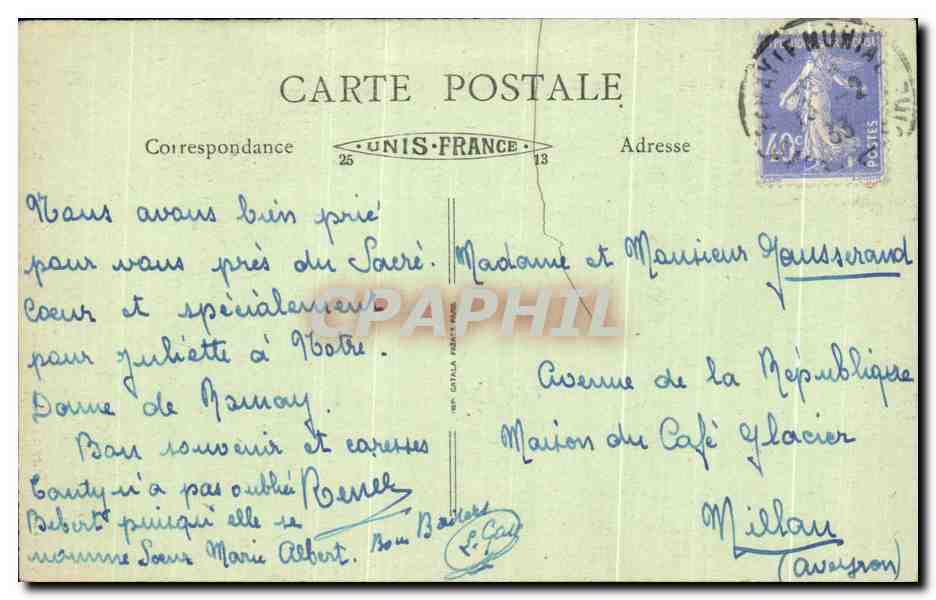 CARTE POSTALE
Correspondance
UNIS-FRANCE
25
13
Adresse
40c
POSTES
PARAY-LE-MONIAL
Nous avons bien prié
pour vous près du Sacré.
Coeur et spécialement
pour Juliette à Notre.
Dame de Romay.
Bon souvenir et caresses
Tanty n'a pas oublié Renée
Bébert puisqu'elle se
nomme Soeur Marie Albert.
Bons Baisers
IMP. CATALA FRÈRES PARIS
Madame et Monsieur Gausserand
Avenue de la République
Maison du Café Glacier
Millau
(Aveyron)
CPAPHIL